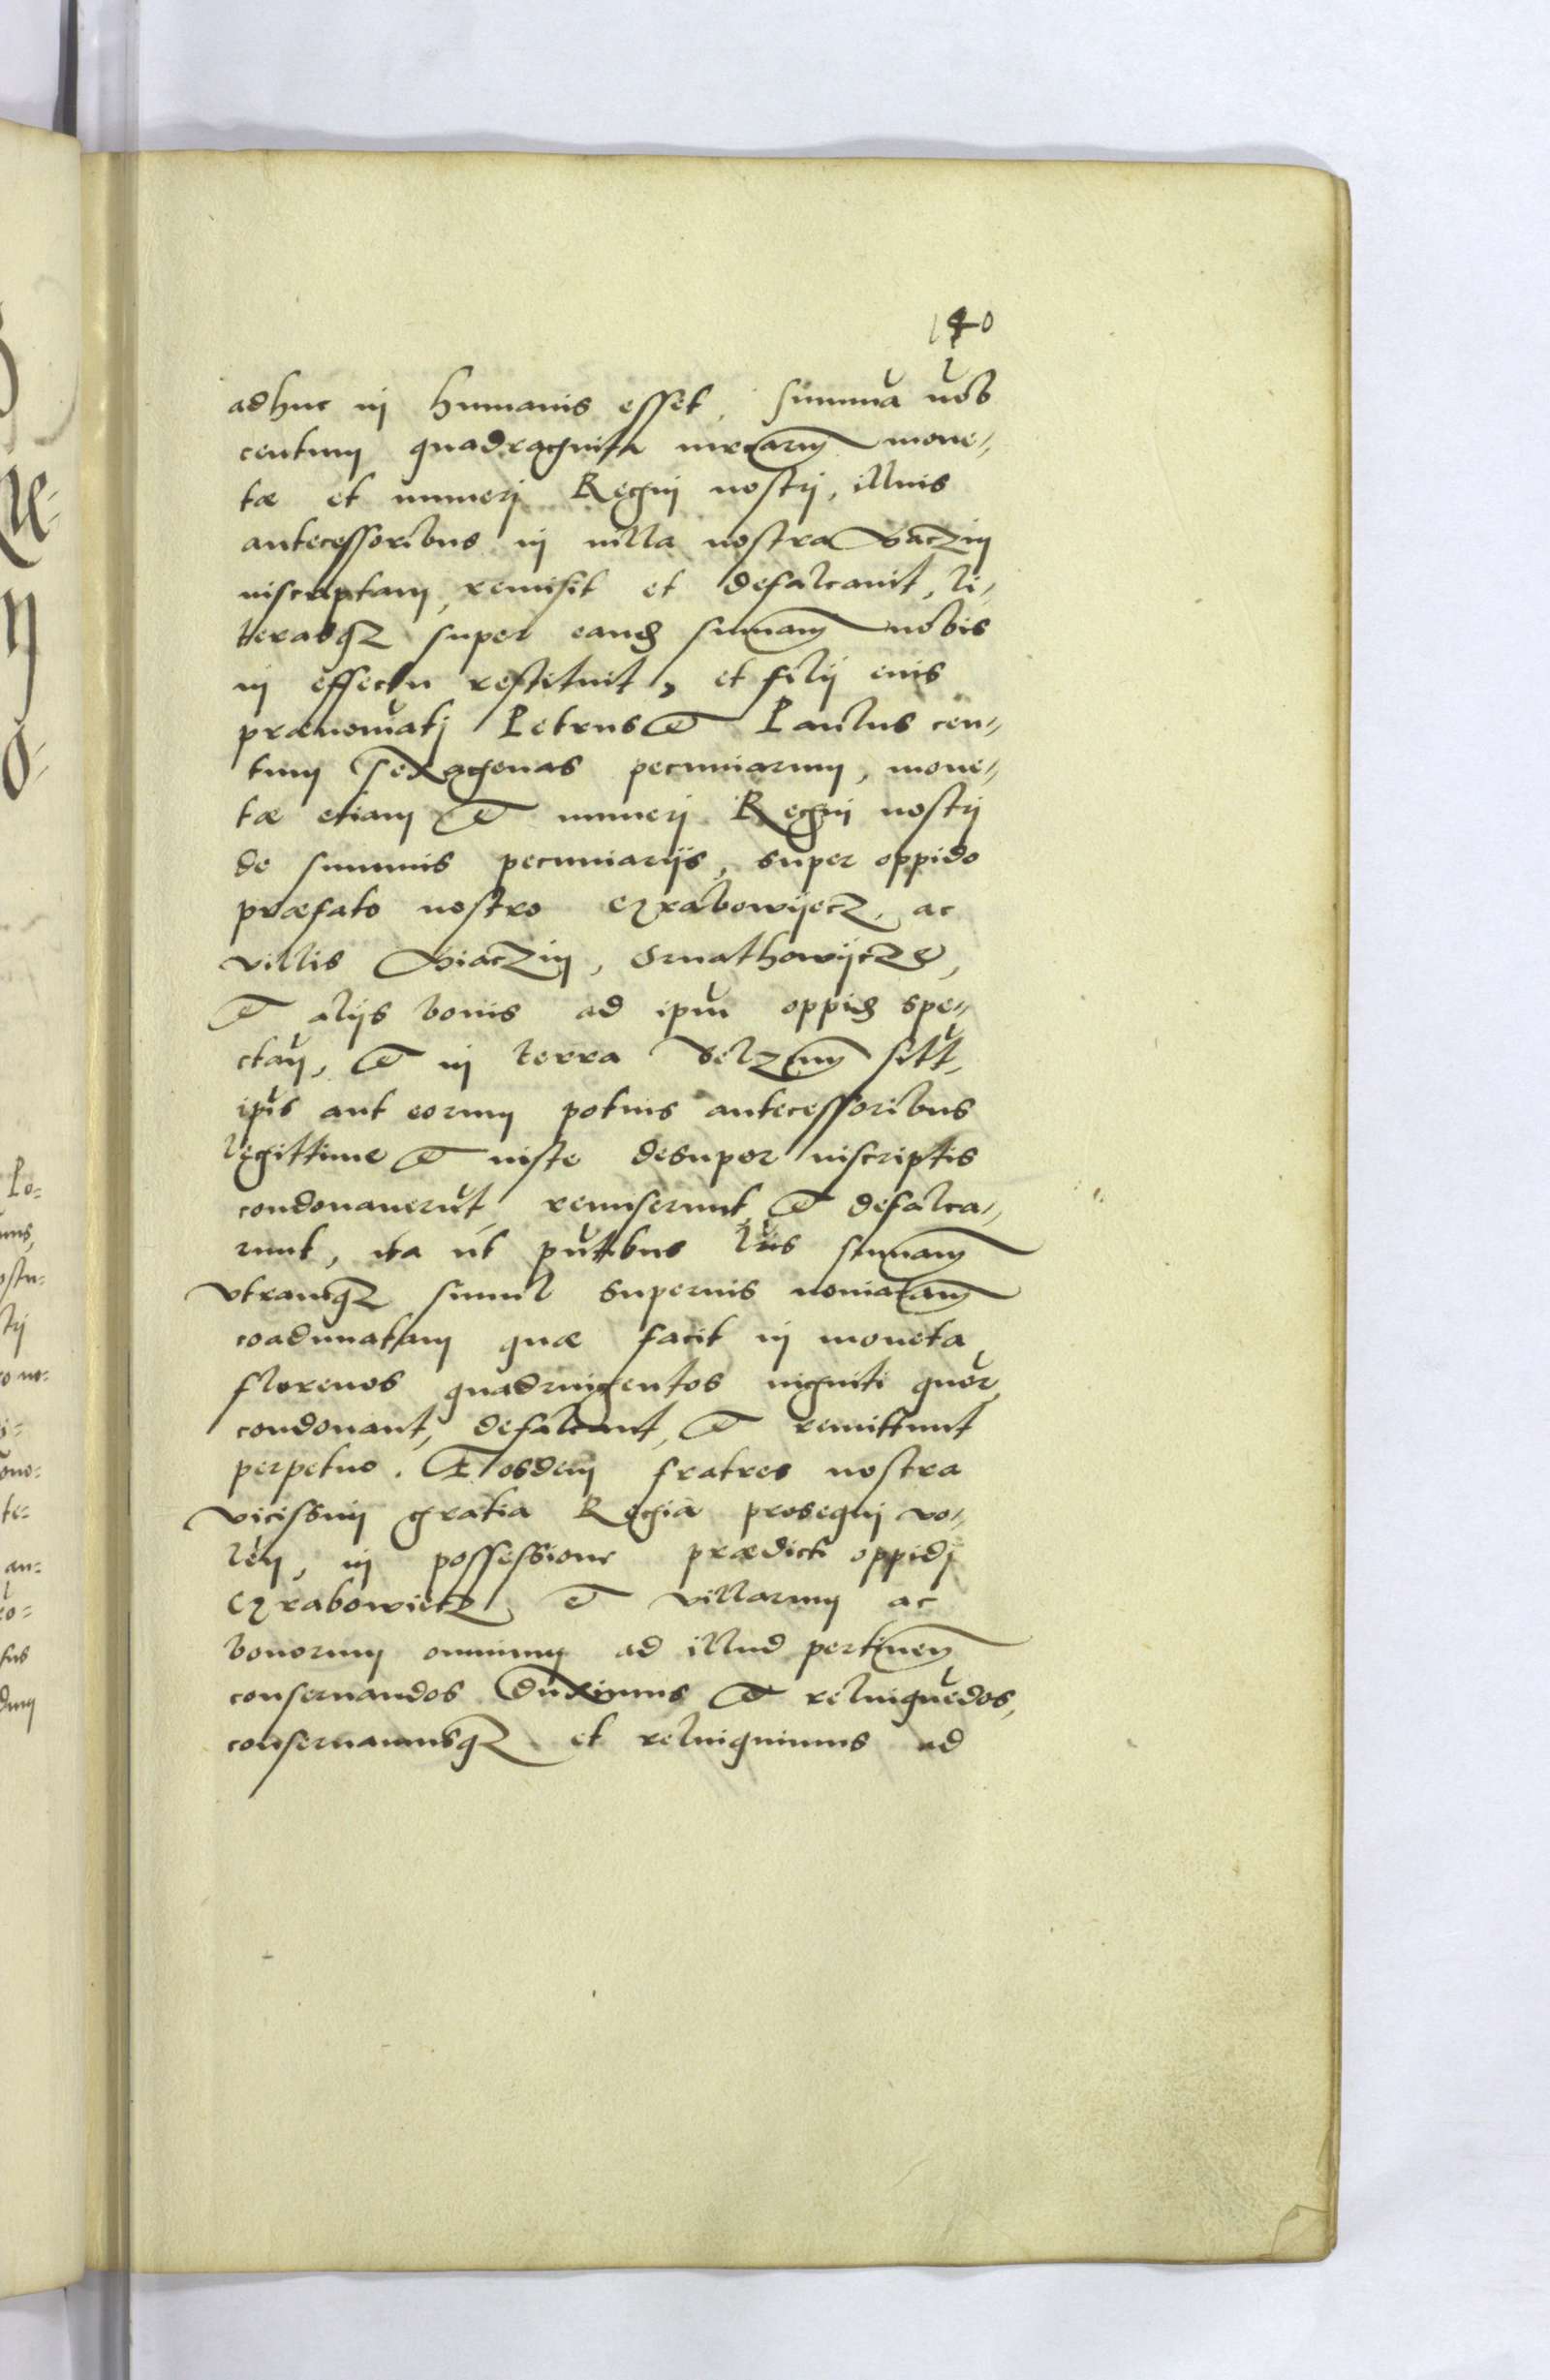 140
adhuc in humanis esset, summa nob
centum quadraginta mrcarum mone-
tæ et numeri Regni nostri, illius
antecessoribus in uilla nostra Waczin
inscriptam, remisit et defalcauit, li-
terasq3 super eand summam nobis
in effectu restituit, et filij eius
prænominati Petrus et Paulus cen-
tum sexagenas pecuniarum, mone-
tæ etiam et numeri Regni nostri
de summis pecuniarijs, super oppido
præfato nostro Czrabowijecz, ac
villis Wiaczin, Ornathowijcze,
et alijs bonis ad ipm oppid spe-
ctan, et in terra Belzen sitt,
ipis aut eorum potius antecessoribus
legittime et iuste desuper inscriptis
condonauerut, remiserunt, et defalca-
runt, ita ut pntibus lris summam
vtramq3 simul superius nominatam
coadunatam quæ facit in moneta
florenos quadringentos uiginti quor,
condonant, defalcant, et remittunt
perpetuo. Et osdem fratres nostra
vicissim gratia Regia prosequi vo-
len, in possessione prædicti oppidi
Czrabowiecz, et villarum ac
bonorum omnium ad illud pertinen
conseruandos duximus et relinquedos,
conseruamusq3 et relinquimus ad